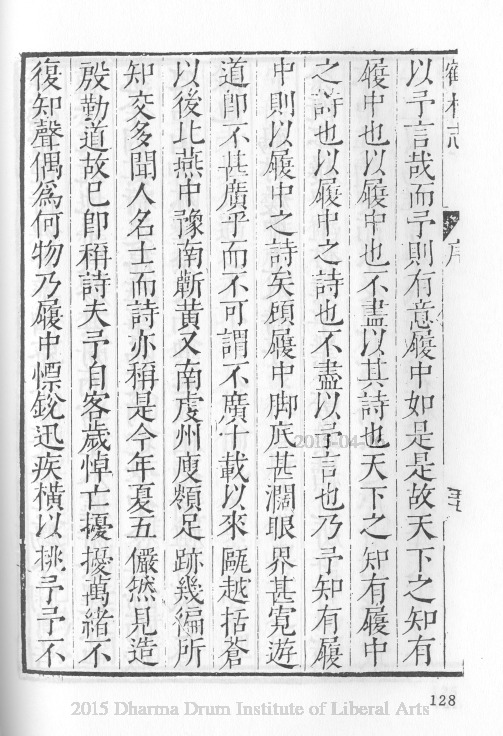 鶴林志
序
五
以予言哉而予則有意履中如是是故天下之知有
履中也以履中也不盡以其詩也天下之知有履中
之詩也以履中之詩也不盡以吾言也乃予知有履
中則以履中之詩矣顧履中脚底甚濶眼界甚寬遊
道卽不甚廣乎而不可謂不廣十載以來甌越括蒼
以後比燕中豫南蘄黃又南虔州庾嶺足跡幾徧所
知交多聞人名士而詩亦稱是今年夏五儼然見造
殷勤道故已卽稱詩夫予自客歲悼亡擾擾萬緒不
復知聲偶爲何物乃履中慓銳迅疾橫以挑予予不
2015-04-
128
2015 Dharma Drum Institute of Liberal Arts